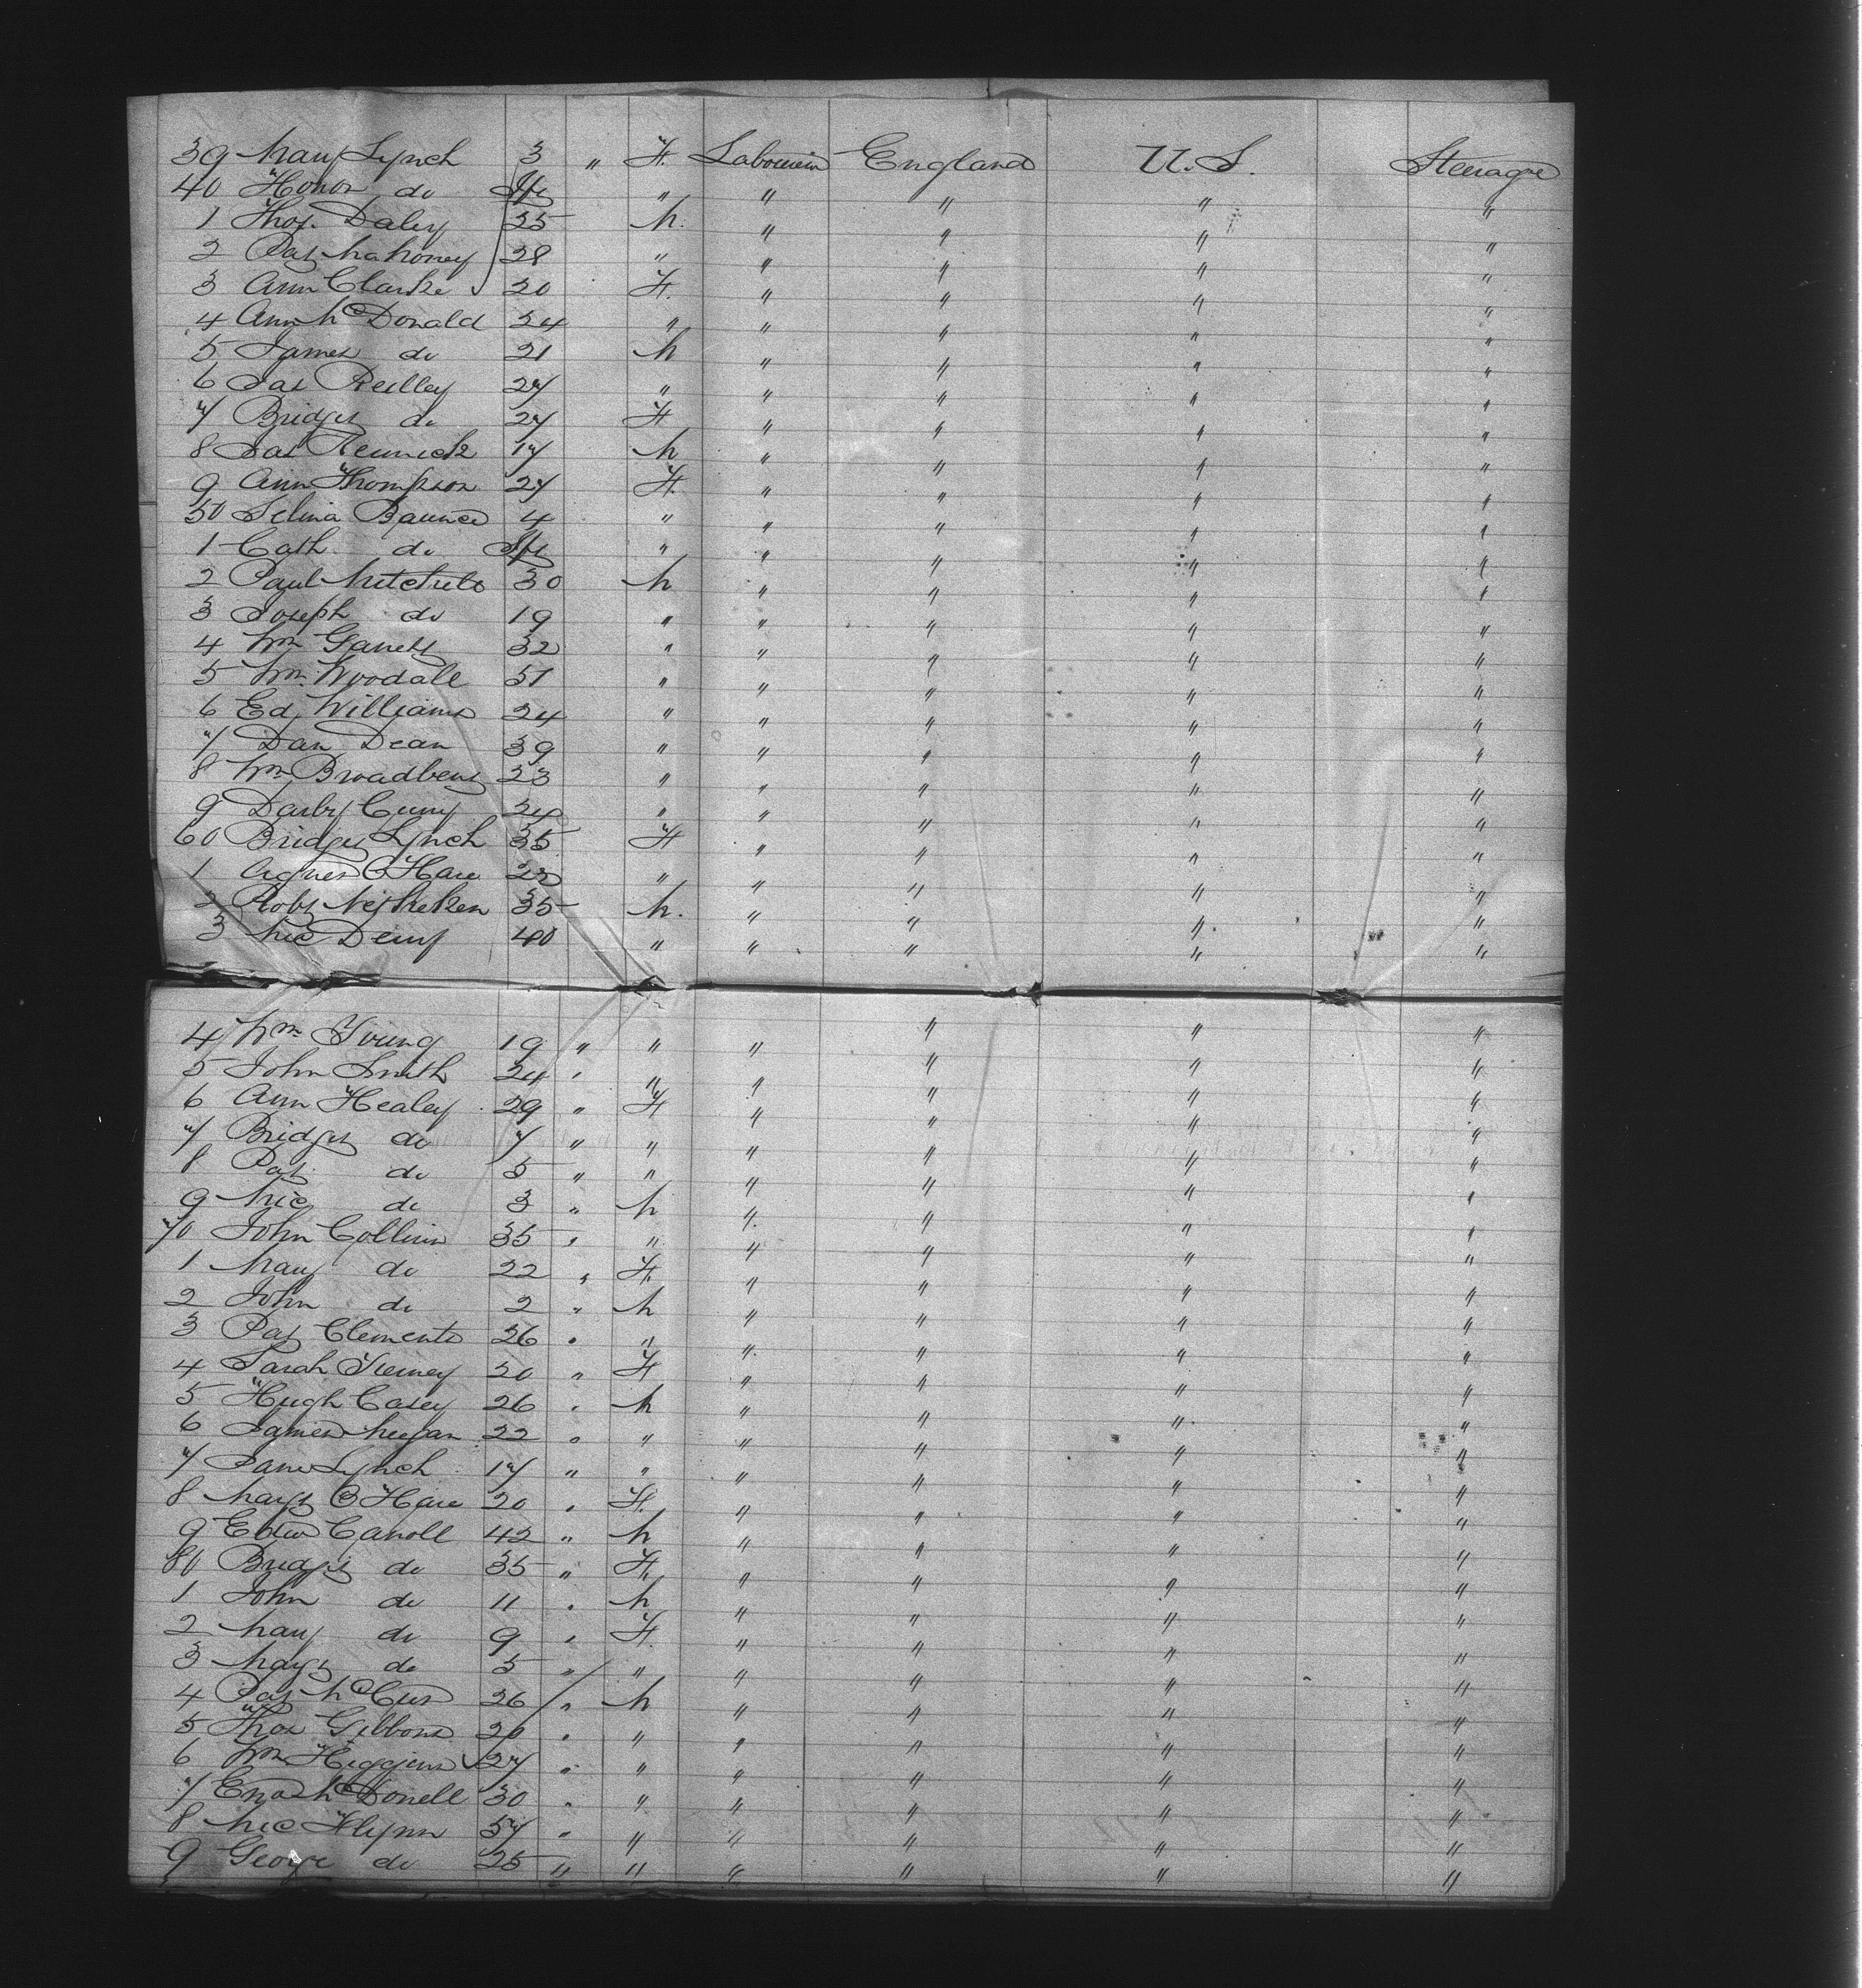 39 Mary Lynch 3 " F. Labourers England U.S. Steerage
40 Honor do Inf " " " " "
1 Thos. Daley 25 M. " " " "
2 Pat Mahoney 28 " " " " "
3 Ann Clarke 20 F. " " " "
4 Ann McDonald 24 " " " " "
5 James do 21 M " " " "
6 Jas Reilley 27 " " " " "
7 Bridget do 27 F " " " "
8 Jas 17 M " " " "
9 Ann Thompson 27 F. " " " "
50 Selina 4 " " " " "
1 Cath do Inf " " " " "
2 Paul Mitchell 30 M " " " "
3 Joseph do 19 " " " " "
4 Wm 32 " " " " "
5 Wm. Woodall 51 " " " " "
6 Ed Williams 24 " " " " "
7 Dan Dean 39 " " " " "
8 Wm Broadbent 23 " " " " "
9 Darby 24 " " " " "
60 Bridget Lynch 35 F " " " "
1 Agnes O'Hare " " " " "
2 Robt 35 M. " " " "
3 Mic 40 " " " " "
4 Wm Young 19 " " " " " "
5 John Smith 24 " " " " " "
6 Ann Healey 29 " F " " " "
7 Bridget do 7 " " " " " "
8 Pat do 5 " " " " " "
9 Mic do 3 " M " " " "
70 John Collins 35 " " " " " "
1 Mary do 22 " F. " " " "
2 John do 2 " M " " " "
3 Pat Clements 26 " " " " " "
4 Sarah 20 " F " " " "
5 Hugh Casey 26 " M " " " "
6 James 22 " " " " " "
7 Jane Lynch 17 " " " " " "
8 Margt O'Hare 20 " F. " " " "
9 Edwd Carroll 42 " M " " " "
80 Bridget do 35 " F. " " " "
1 John do 11 " M " " " "
2 Mary do 9 " F. " " " "
3 Margt do 5 " " " " " "
4 Pat 26 " M " " " "
5 Thos Gibbons 20 " " " " " "
6 Wm Higgins 27 " " " " " "
7 McDonell 30 " " " " " "
8 Mic Flynn 57 " " " " " "
9 George do 25 " " " " " "